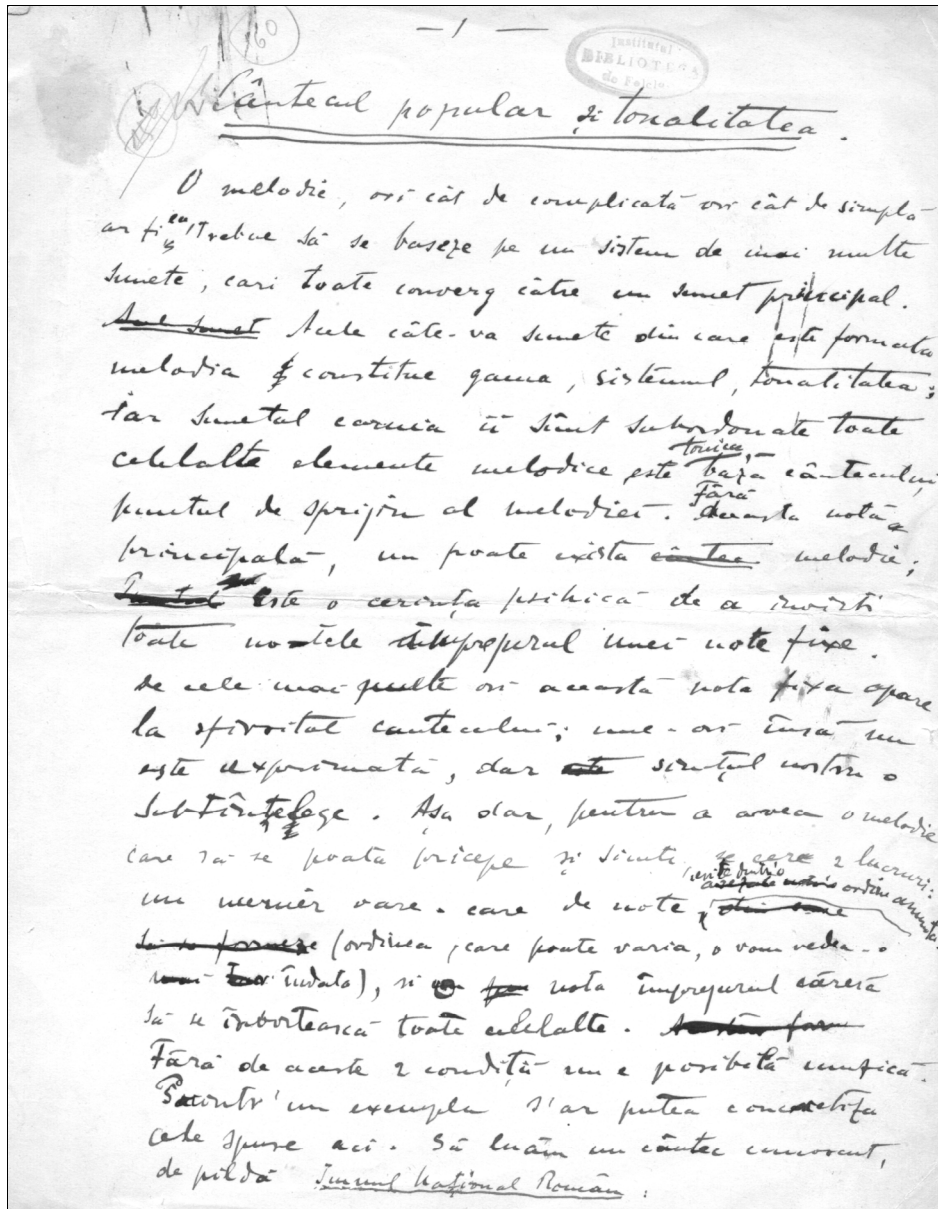 — 1 —
160
Institutul
BIBLIOTECA
de Folclor
Cântecul popular și tonalitatea.
O melodie, ori cât de complicată ori cât de simplă
ar fi ea, trebue să se baseze pe un sistem de mai multe
sunete, cari toate converg către un sunet principal.
Acel sunet Acele câte-va sunete din care este formata
melodia constitue gama, sistemul, tonalitatea;
iar sunetul caruia îi sînt subordonate toate
celelalte elemente melodice este tonica, baza cântecului,
punctul de sprijin al melodiei. Fără aceasta notă
principală, nu poate exista cântec melodie;
Este o cerința psihică de a învîrti
toate notele împrejurul unei note fixe.
De cele mai multe ori această nota fixa apare
la sfirsitul cantecului; une-ori însă nu
este exprimată, dar este simțul nostru o
subînțelege. Așa dar, pentru a avea o melodie
care să se poată pricepe și simți, se cere 2 lucruri:
un numér oare-care de note, așezate într'o ordin anumita
din care
să se formeze (ordinea, care poate varia, o vom vedea-o
mai îndata), si nota împrejurul căreia
să se învîrtească toate celelalte.
Fără de aceste 2 condiții nu e posibilă muzică.
Printr'un exemplu s'ar putea concretiza
cele spuse aci. Să luăm un cântec cunoscut,
de pildă Imnul Național Român: